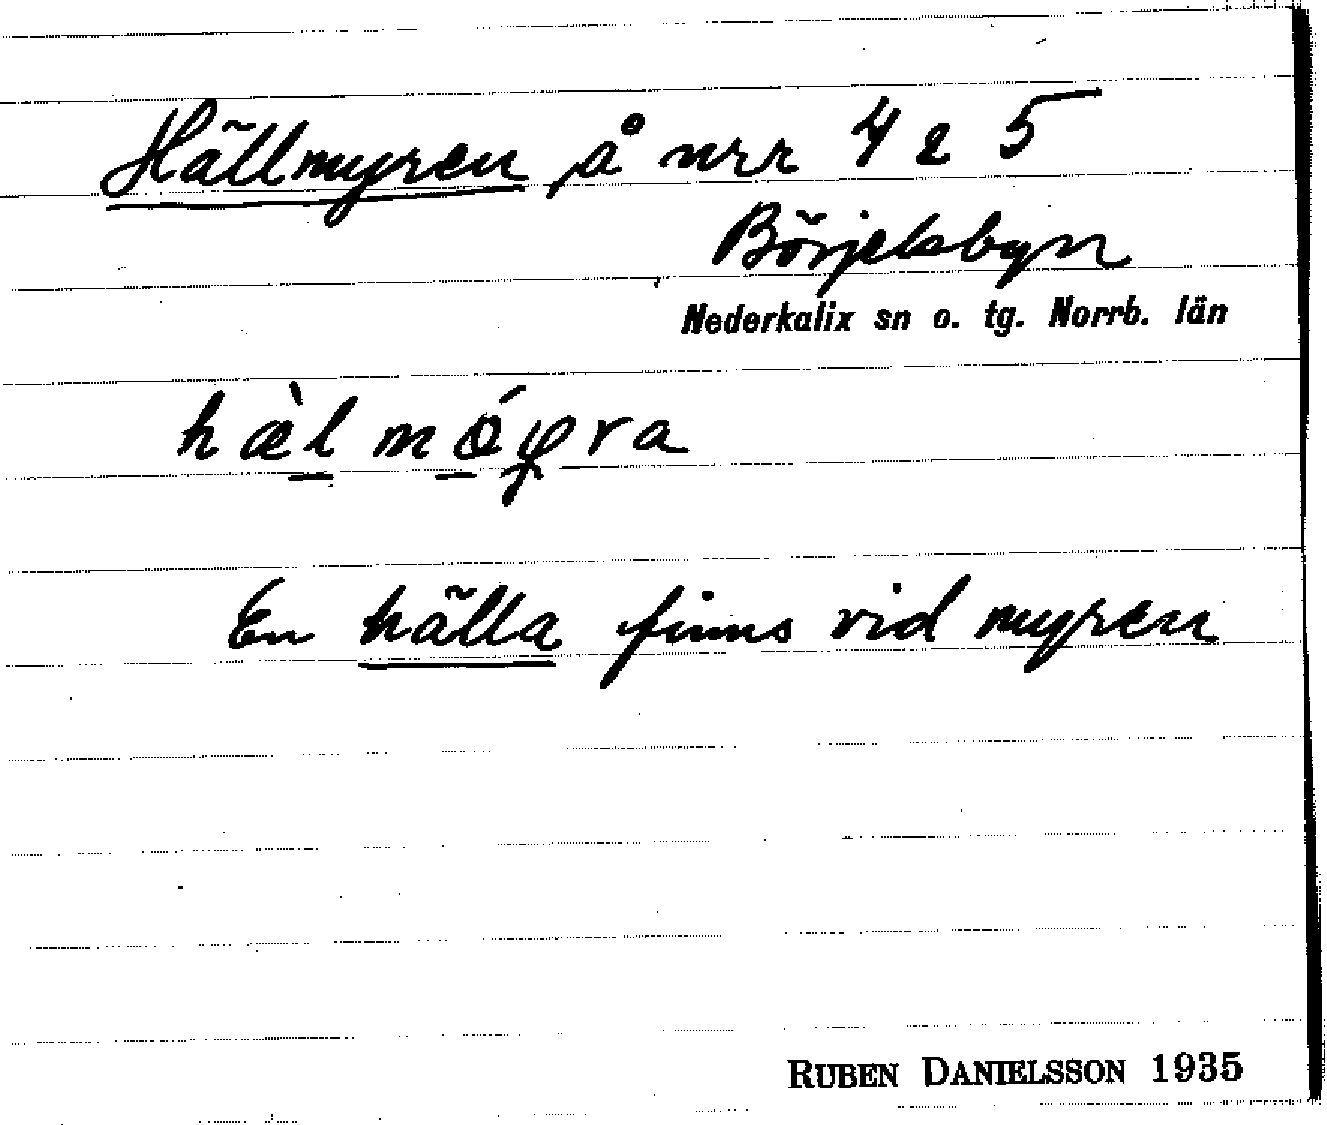 Hällmyren å nrr 4 o 5
Börjelsbyn
Nederkalix sn o. tg. Norrb. län
En hälla finns vid myren
RUBEN DANIELSSON 1935